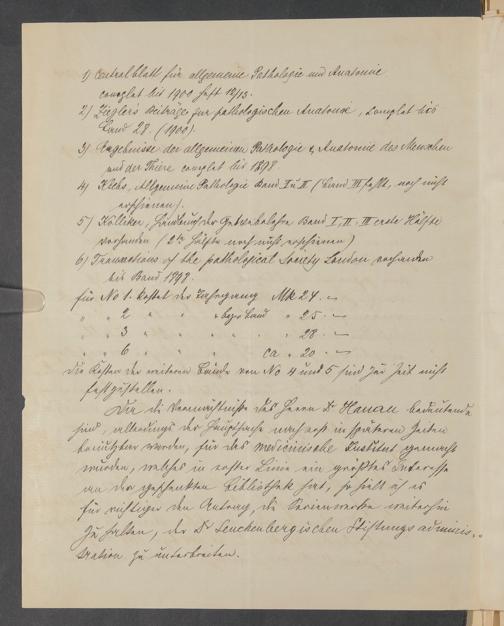 1) Centralblatt für allgemeine Pathologie und Anatomie
complet bis 1900 Heft 12/13.
2) Ziegler's Beiträge zur pathologischen Anatomie, complet bis
Band 28. (1900).
3) Ergebnisse der allgemeinen Pathologie u. Anatomie des Menschen
und der Thiere complet bis 1898.
4) Klebs, Allgemeine Pathologie Band I u II (Band III fehlt, noch nicht
erschienen).
5) Kölliker, Handbuch der Gewebelehre Band I, II. III erste Hälfte
vorhanden (2te Hälfte noch nicht erschienen)
6) Transactions of the pathological Society London vorhanden
bis Band 1898.
für No 1. kostet der Jahrgang Mk 24. –
" " 2 " " " Band " 25. –
" " 3 " " " " 28. –
" " 6 " " " ca " 20. –
Die Kosten der weiteren Bände von No 4 und 5 sind zur Zeit nicht
festzustellen.
Da die Vermächtnisse des Herrn Dr Hanau bedeutende
sind, allerdings der Hauptsache nach erst in späteren Zeiten
benutzbar werden, für das medicinische Institut gemacht
wurden, welches in erster Linie ein größtes Interesse
an der geschenkten Bibliothek hat, so hielt ich es
für richtiger den Antrag, die Serienwerke weiterhin
zu halten, der Dr Senckenbergischen Stiftungsadminis-
tration zu unterbreiten.